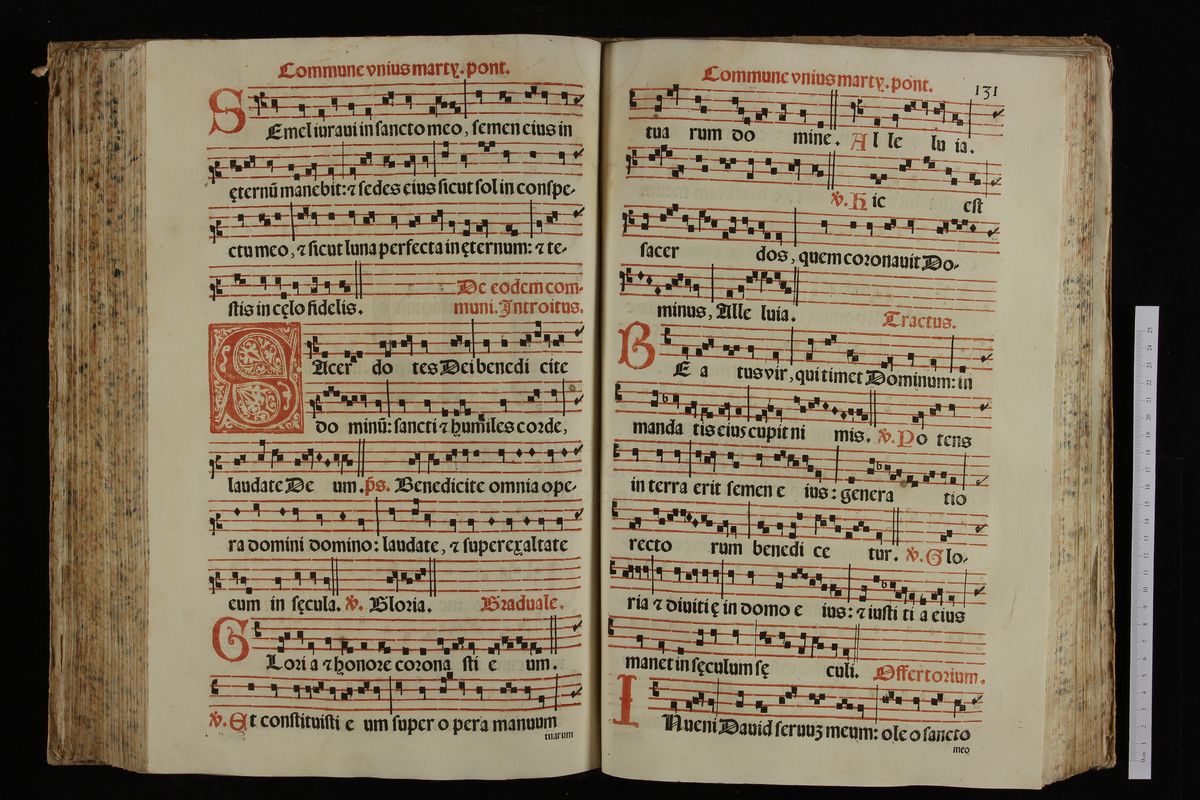 Commune vnius martyꝝ. pont.
SEmel iuraui in sancto meo, semen eius in
ęternũ manebit: ⁊ sedes eius sicut sol in conspe-
ctu meo, ⁊ sicut luna perfecta in ęternum: ⁊ te-
stis in cęlo fidelis. De eodem com-
muni. Introitus.
SAcer do tes Dei benedi cite
do minũ: sancti ⁊ humiles corde,
laudate De um. p̃s. Benedicite omnia ope-
ra domini domino: laudate, ⁊ superexaltate
eum in sęcula. ℣. Gloria. Graduale.
GLori a ⁊ honore corona sti e um.
℣. Et constituisti e um super o pera manuum
tuarum
Commune vnius martyꝝ. pont. 131
tua rum do mine. Al le lu ia.
℣. Hic est
sacer dos, quem coronauit Do-
minus, Alle luia. Tractus.
BE a tus vir, qui timet Dominum: in
manda tis eius cupit ni mis. ℣. Po tens
in terra erit semen e ius: genera tio
recto rum benedi ce tur. ℣. Glo-
ria ⁊ diuiti ę in domo e ius: ⁊ iusti ti a eius
manet in sęculum sę culi. Offertorium.
INueni Dauid seruuꝫ meum: ole o sancto
meo